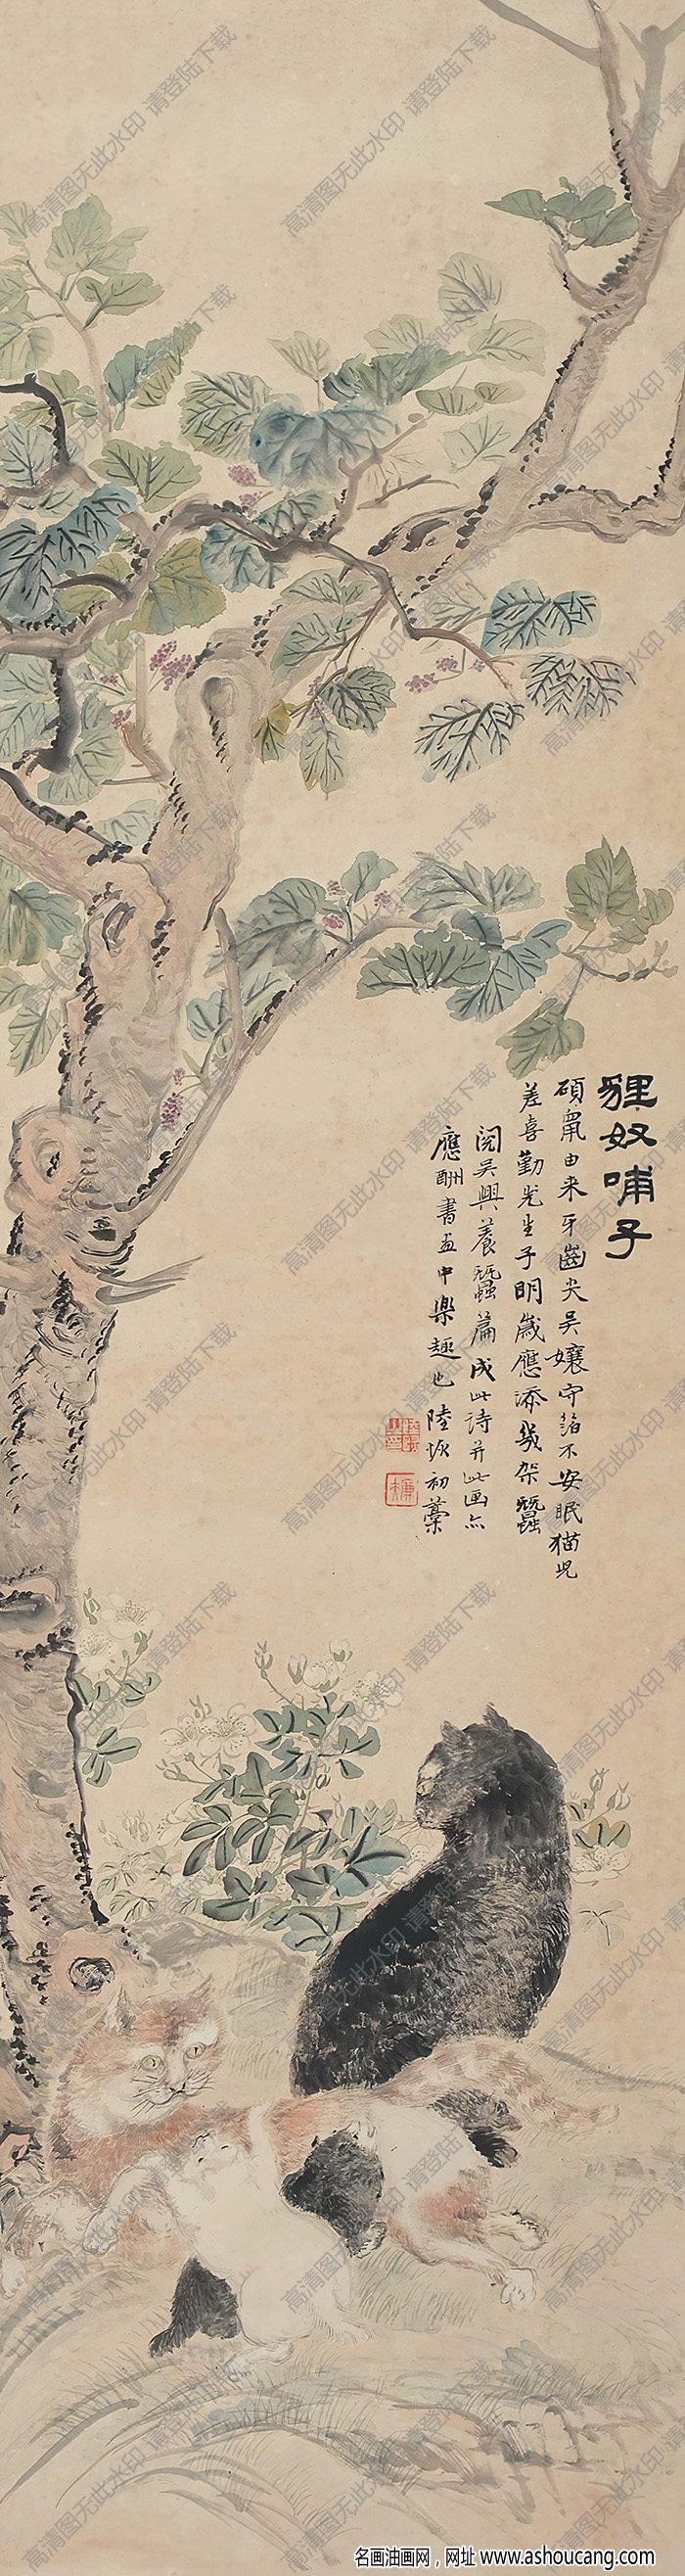 貍奴哺子
碩鼠由来牙齒尖吴孃守箔不安眠猫児
差喜勤先生子明歲應添幾架蠶
閲吴興養蠶篇成此诗并此画亦
應酬書画中樂趣也陸恢初藁
名画油画网，网址 www.ashoucang.com
高清图无此水印 请登陆下载